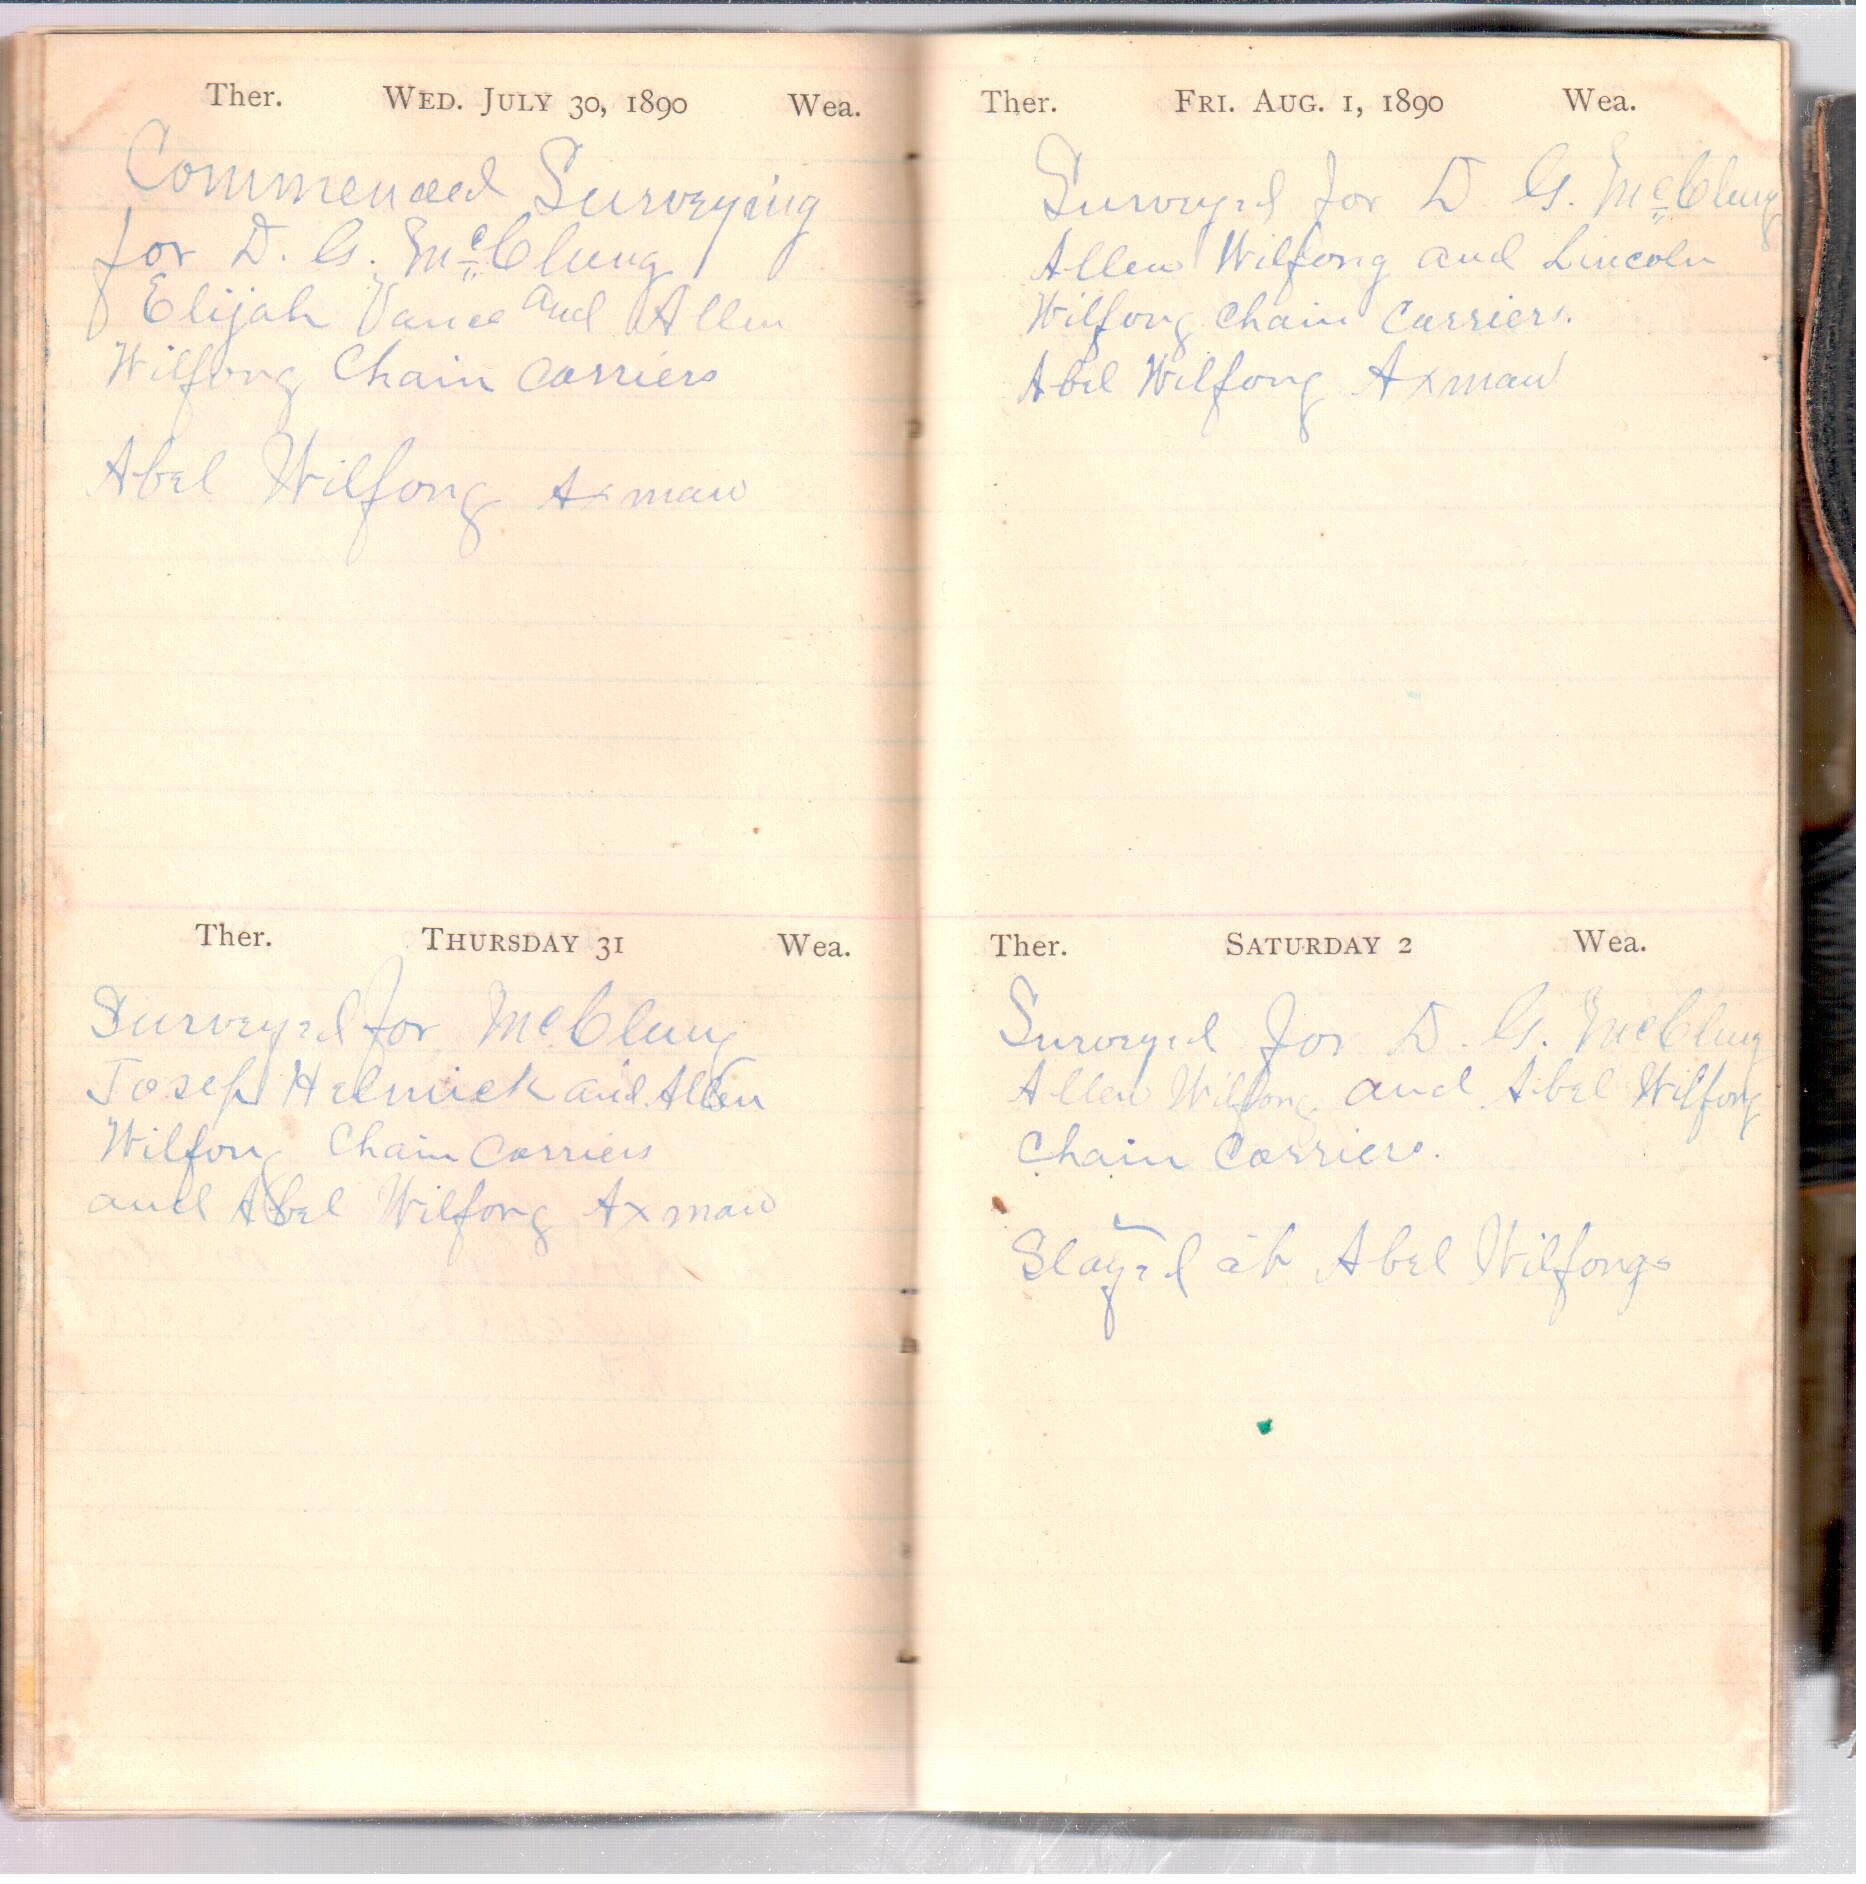 Ther. WED. JULY 30, 1890 Wea.
Commenced Surveying
for D. G. McClung
Elijah Vance and Allen
Wilfong Chain Carriers
Abel Wilfong Axman
Ther. THURSDAY 31 Wea.
Surveyed for McClung
Josep Helmick and Allen
Wilfong Chain Carriers
and Abel Wilfong Axman
Ther. FRI. AUG. 1, 1890 Wea.
Surveyed for D. G. McClung
Allen Wilfong and Lincoln
Wilfong Chain Carriers.
Abel Wilfong Axman
Ther. SATURDAY 2 Wea.
Surveyed for D. G. McClung
Allen Wilfong and Abel Wilfong
Chain Carriers.
Stayed at Abel Wilfongs